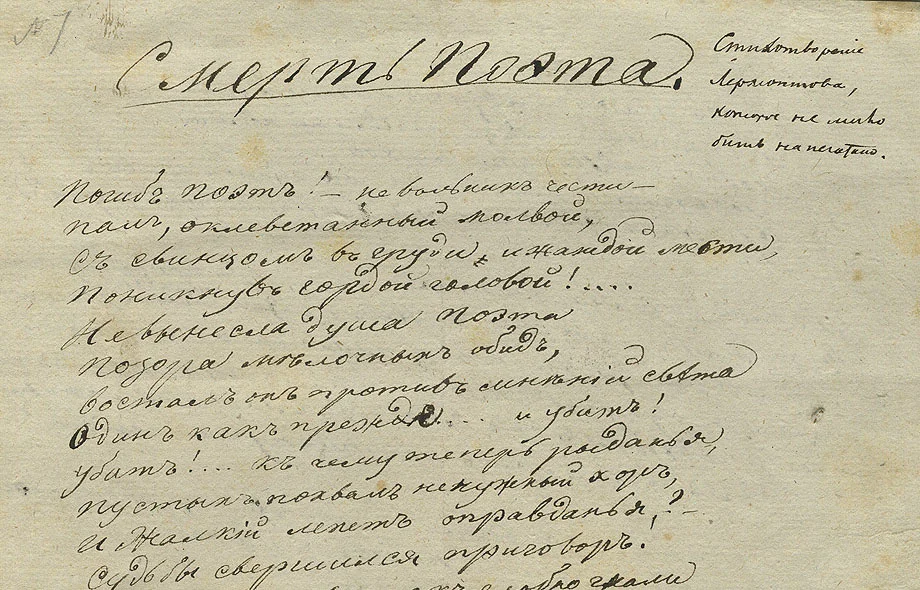 № 7
Смерть Поэта.
Стихотвореніе
Лермонтова,
которое не могло
быть напечатано.
Погибъ поэтъ! — невольникъ чести —
палъ, оклеветанный молвой,
Съ свинцомъ въ груди, и жаждой мести,
Поникнувъ гордой головой!....
Не вынесла душа поэта
Позора мѣлочныхъ обидъ,
восталъ онъ противъ мнѣній свѣта
Одинъ какъ прежде.... и убитъ!
Убитъ!.... къ чему теперь рыданья,
пустыхъ похвалъ ненужный хоръ,
И Жалкій лепетъ оправданья,?—
Судьбы свершился приговоръ.
злобно гнали